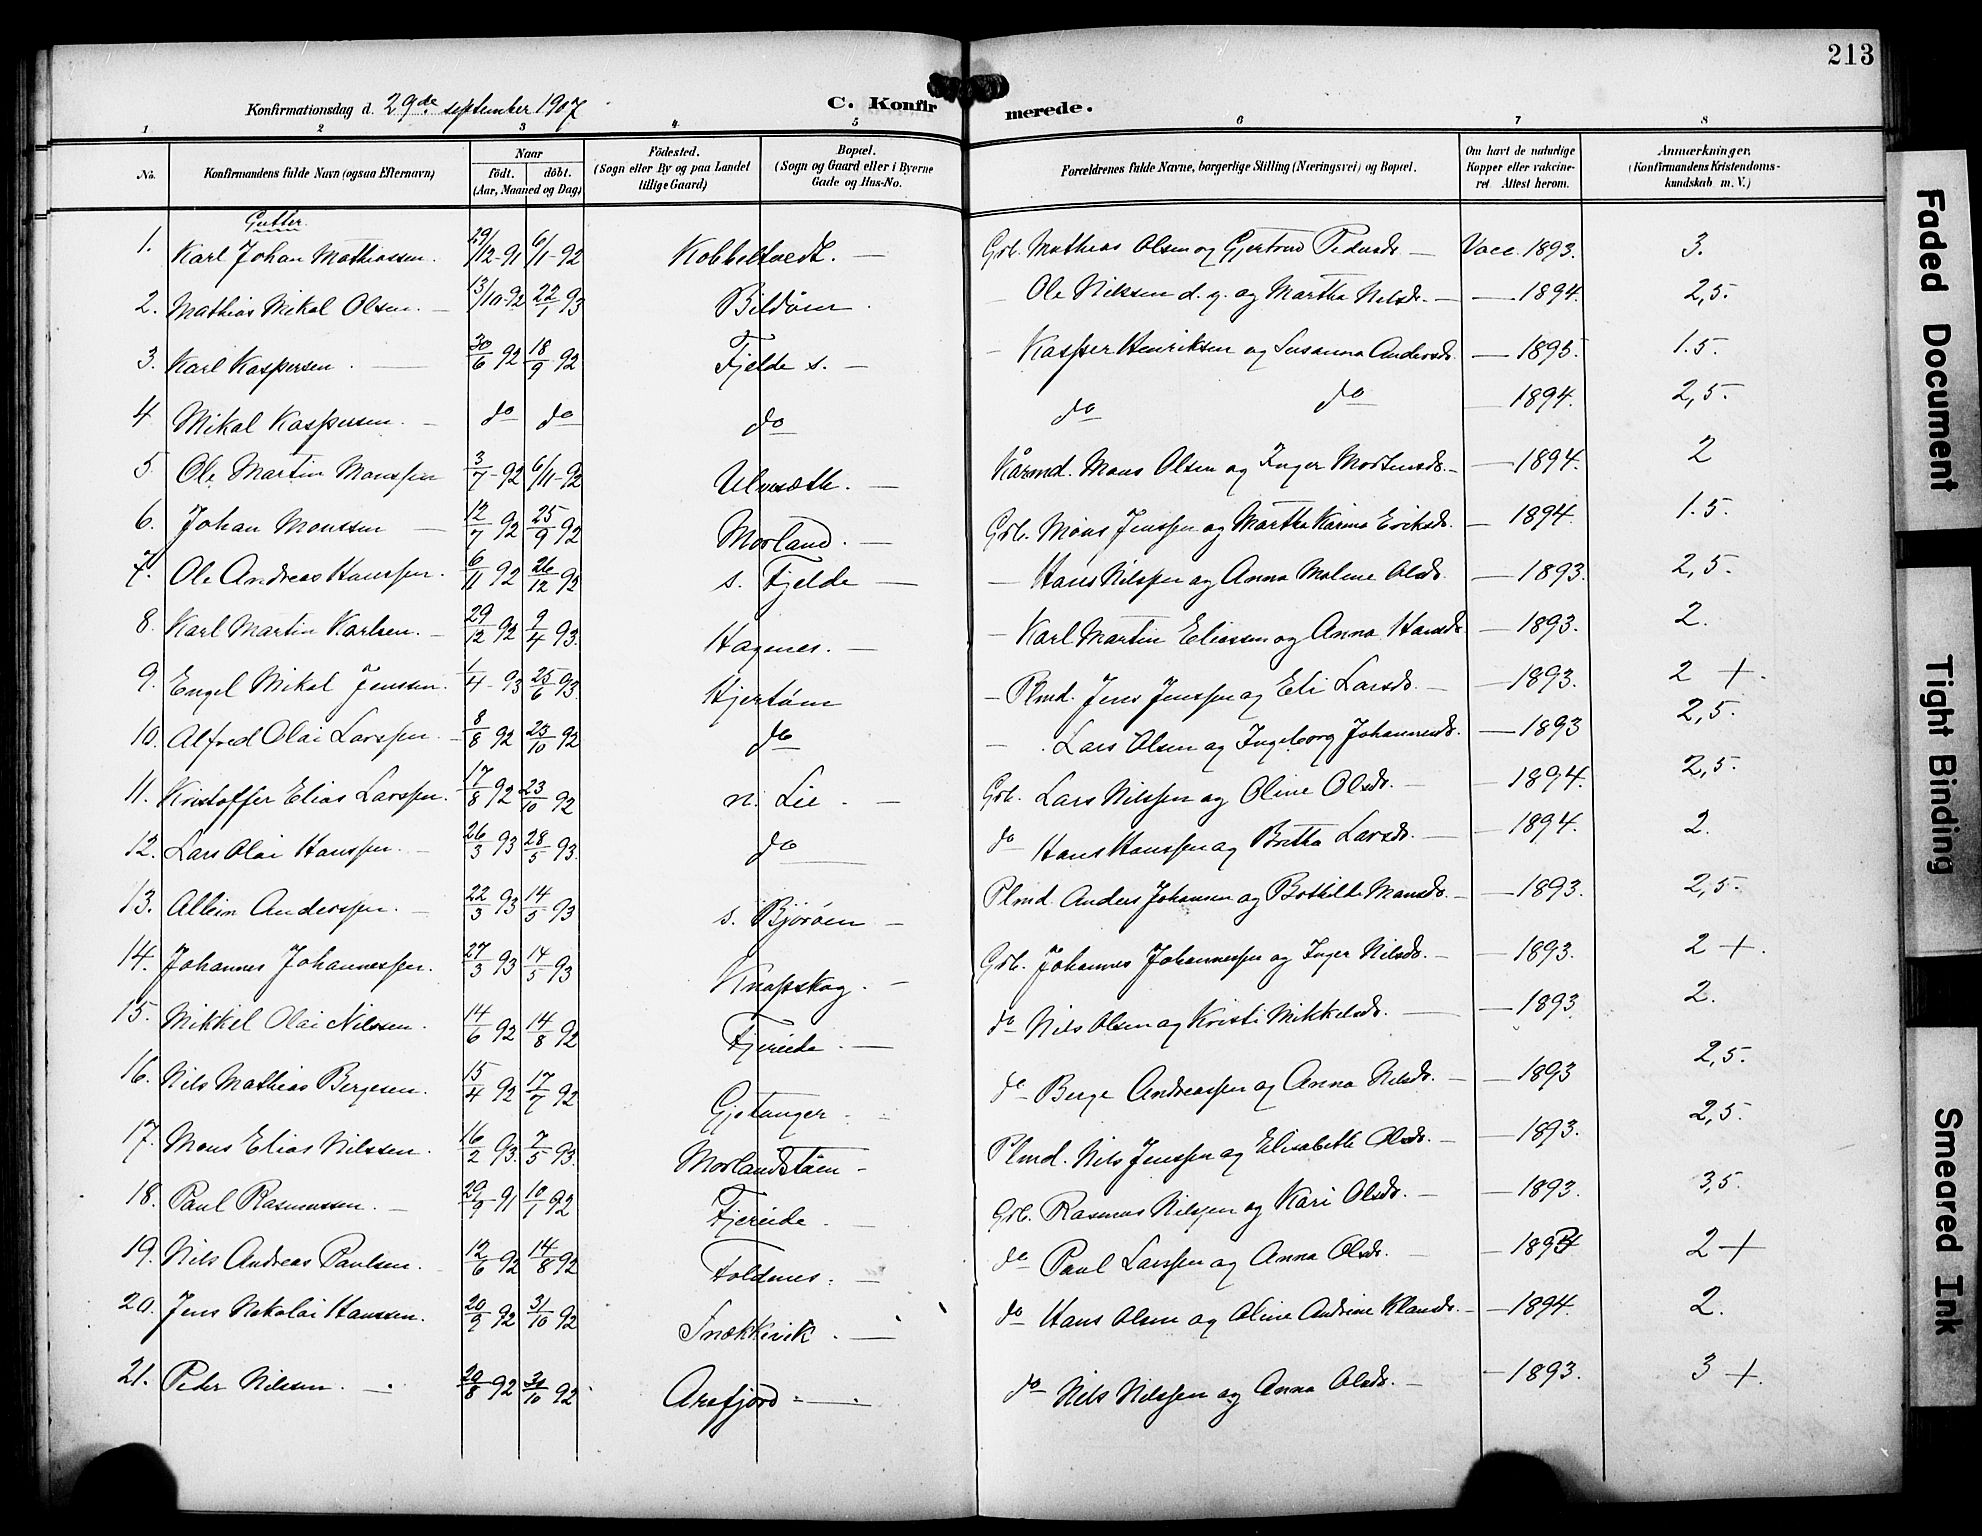 213
Konfirmationsdag d. 29de september 1907
C. Konfirmerede.
1 2 3 4 5 6 7 8
No. Konfirmandens fulde Navn (ogsaa Efternavn) Naar født. døbt. (Aar, Maaned og Dag) Fødested. (Sogn eller By og paa Landet tillige Gaard) Bopæl. (Sogn og Gaard eller i Byerne Gade og Hus-No. Forældrenes fulde Navne, borgerlige Stilling (Næringsvei) og Bopæl. Om havt de naturlige Kopper eller vaccineret. Attest herom. Anmærkninger. (Konfirmandens Kristendomskundskab m. V.)
Gutter.
1. Karl Johan Mathiassen. 29/12-91 6/1-92 Kobbeltvedt. — Grb. Mathias Olsen og Gjertrud Pedersdr. — Vacc. 1893. 3.
2. Mathias Mikal Olsen. — 13/10-92 22/1 93 Bildøen Ole Nilsen d. y. og Martha Nilsdr. — — 1894. 2,5.
3. Karl Kaspersen. — 30/6 92 18/9 92 Fjelde s. — — Kasper Henriksen og Susanna Andersdr. — 1895. 1.5.
4 Mikal Kaspersen. — do do do do do — 1894. 2,5.
5 Ole Martin Monssen 3/7-92 6/11-92 Ulvesæth. — Kårmd. Mons Olsen og Inger Mortensdr. — — 1894. 2
6. Johan Monssen — 12/7 92 25/9 92 Morland. — Grb. Mons Jenssen og Martha Karina Eriksdr. — 1894. 1.5.
7. Ole Andreas Hanssen. 6/11 92 26/12 92 s. Fjelde — — Hans Nilssen og Anna Malene Olsdr. — 1893. 2,5.
8. Karl Martin Karlsen. — 29/12 92 9/4 93. Hagenes. — — Karl Martin Eliassen og Anna Hansdr. — 1893. 2.
9. Engel Mikal Jenssen. 1/4-93 25/6 93. Hjertøen — Plmd. Jens Jenssen og Eli Larsdr. — — 1893. 2 +.
10. Alfred Olai Larssen. — 8/8 92 23/10 92 do — Lars Olsen og Ingeborg Johannesdr. — 1893 2,5.
11. Kristoffer Elias Larssen. 17/8 92 23/10 92 n. Lie. — Grb. Lars Nilssen og Oline Olsdr. — — 1894. 2,5.
12. Lars Olai Hanssen. — 26/3 93 28/5 93. do do Hans Hanssen og Britha Larsdr. — — 1894. 2.
13. Anderssen. — 22/3 93 14/5 93 s. Bjørøen — Plmd. Anders Johansen og Bothilde Monsdr. — — 1893. 2,5.
14. Johannes Johannessen. 27/3 93 14/5 93 Knapskog. — Grb. Johannes Johannessen og Inger Nilsdr. — — 1893. 2 +.
15. Mikkel Olai Nilssen. 14/6 92 14/8 92 Fjereide. — do Nils Olsen og Kristi Mikkelsdr. — — 1893. 2.
16. Nils Mathias Bergesen. 15/4 92 17/7 92 Gjetanger. do Berge Andreassen og Anna Nilsdr. — — 1893 2,5.
17. Mons Elias Nilssen. 16/2 93. 7/5 93. Morlandstøen — Plmd. Nils Jenssen og Elisabeth Olsdr. — — 1893. 2,5.
18. Paul Rasmussen. — 29/9 91 10/1 92 Fjereide. — Grb. Rasmus Nilssen og Kari Olsdr. — — 1893. 3,5.
19. Nils Andreas Paulsen. 12/6 92 14/8 92 Foldenes. — do Paul Larssen og Anna Olsdr. — — 1894 2 +
20. Jens Nikolai Hanssen. 20/9 92 31/10 92 Snekkevik. — do Hans Olsen og Oline Andrine Klausdr. — — 1894. 2.
21. Peder Nilssen. — 20/8 92 31/10 92 Arefjord — do Nils Nilssen og Anna Olsdr. — — 1893. 3 +.
Faded Document
Tight Binding
Smeared Ink